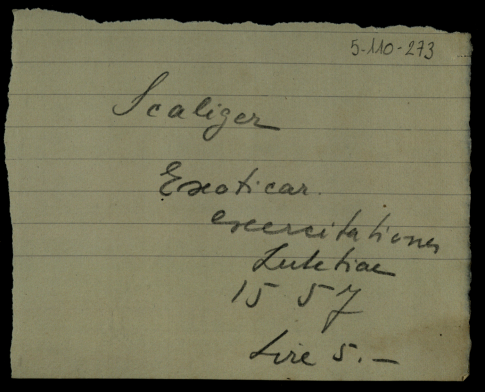 5-110-273
Scaliger
Exoticar.
exercitationes
Lutetiae
1557
Lire 5.—